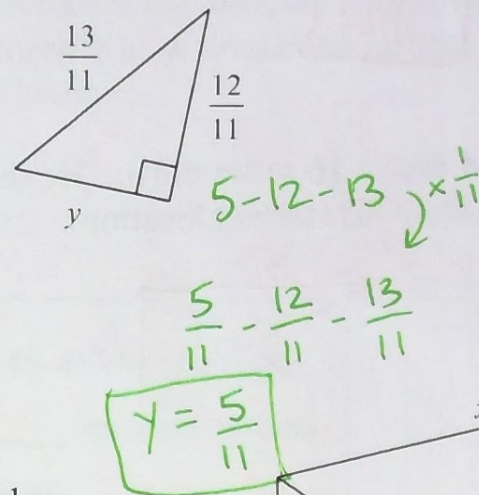 13/11
12/11
y
5-12-13 × 1/11
5/11 - 12/11 - 13/11
y = 5/11